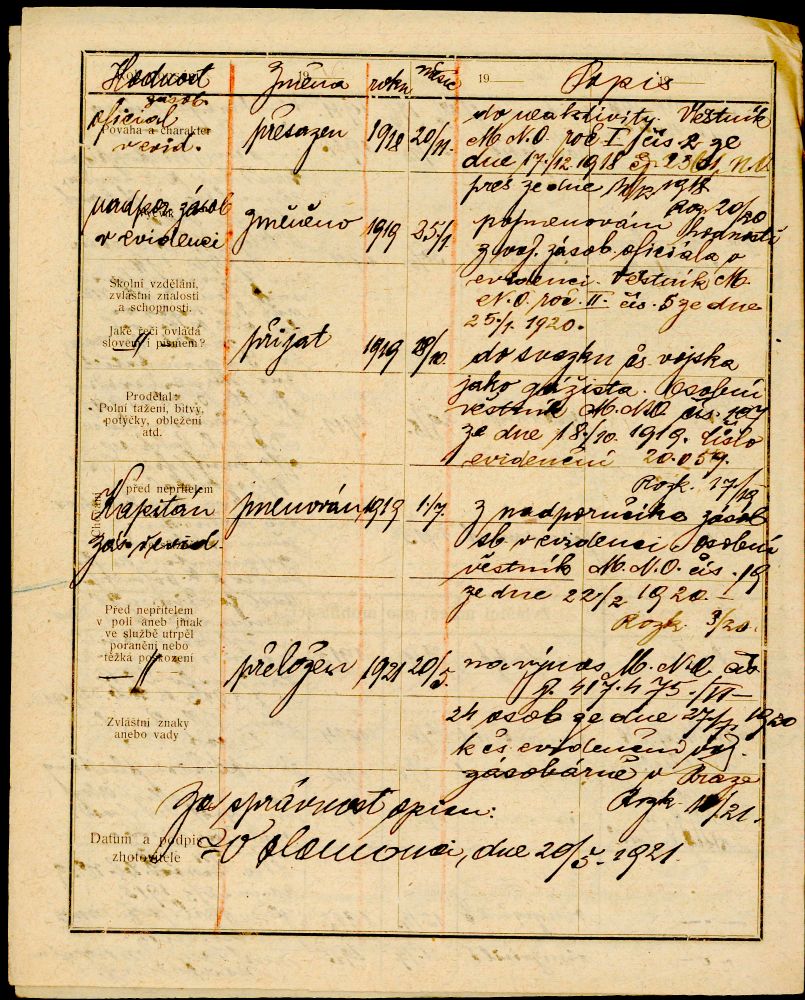 Hodnost Změna roku měsíc 19 Popis 19
zásob.
oficiál
Povaha a charakter
v evid.
přesazen 1918 20/11.
do neaktivity. Věstník
M. N. O. roč. I čís. 2 ze
dne 17./12. 1918
pres. ze dne 1918
Roz. 20/20
nadpor. zásob
v evidenci
změněno 1919 25./1.
pojmenování hodnosti
z voj. zásob. oficiála v
evidenci. Věstník M.
N. O. roč. II. čís. 5 ze dne
25./1. 1920.
Školní vzdělání,
zvláštní znalosti
a schopnosti.
Jaké řeči ovládá
slovem i písmem?
přijat 1919 28/10.
do svazku čs. vojska
jako gážista. Osobní
věstník M. N. O. čís. 107
ze dne 18./10. 1919. Číslo
evidenční 20.059.
Rozk. 17/19
Prodělal:
Polní tažení, bitvy,
potyčky, obležení
atd.
před nepřítelem
Chování
Kapitán
zás. v evid.
jmenován 1919 1./7.
z nadporučíka zásob
sb. v evidenci. Osobní
věstník M. N. O. čís. 19
ze dne 22./2. 1920.
Rozk. 3/20.
Před nepřítelem
v poli aneb jinak
ve službě utrpěl
poranění nebo
těžká poškození
přeložen 1921 20/5.
na výnos M. N. O. čís.
417.475./VI
24 osob ze dne 27./7. 1920
k čs. evidenční voj.
zásobárně v Praze
Rozk. 11/21.
Zvláštní znaky
anebo vady
Za správnost opisu:
Datum a podpis
zhotovitele
V Olomouci, dne 20/5. 1921.